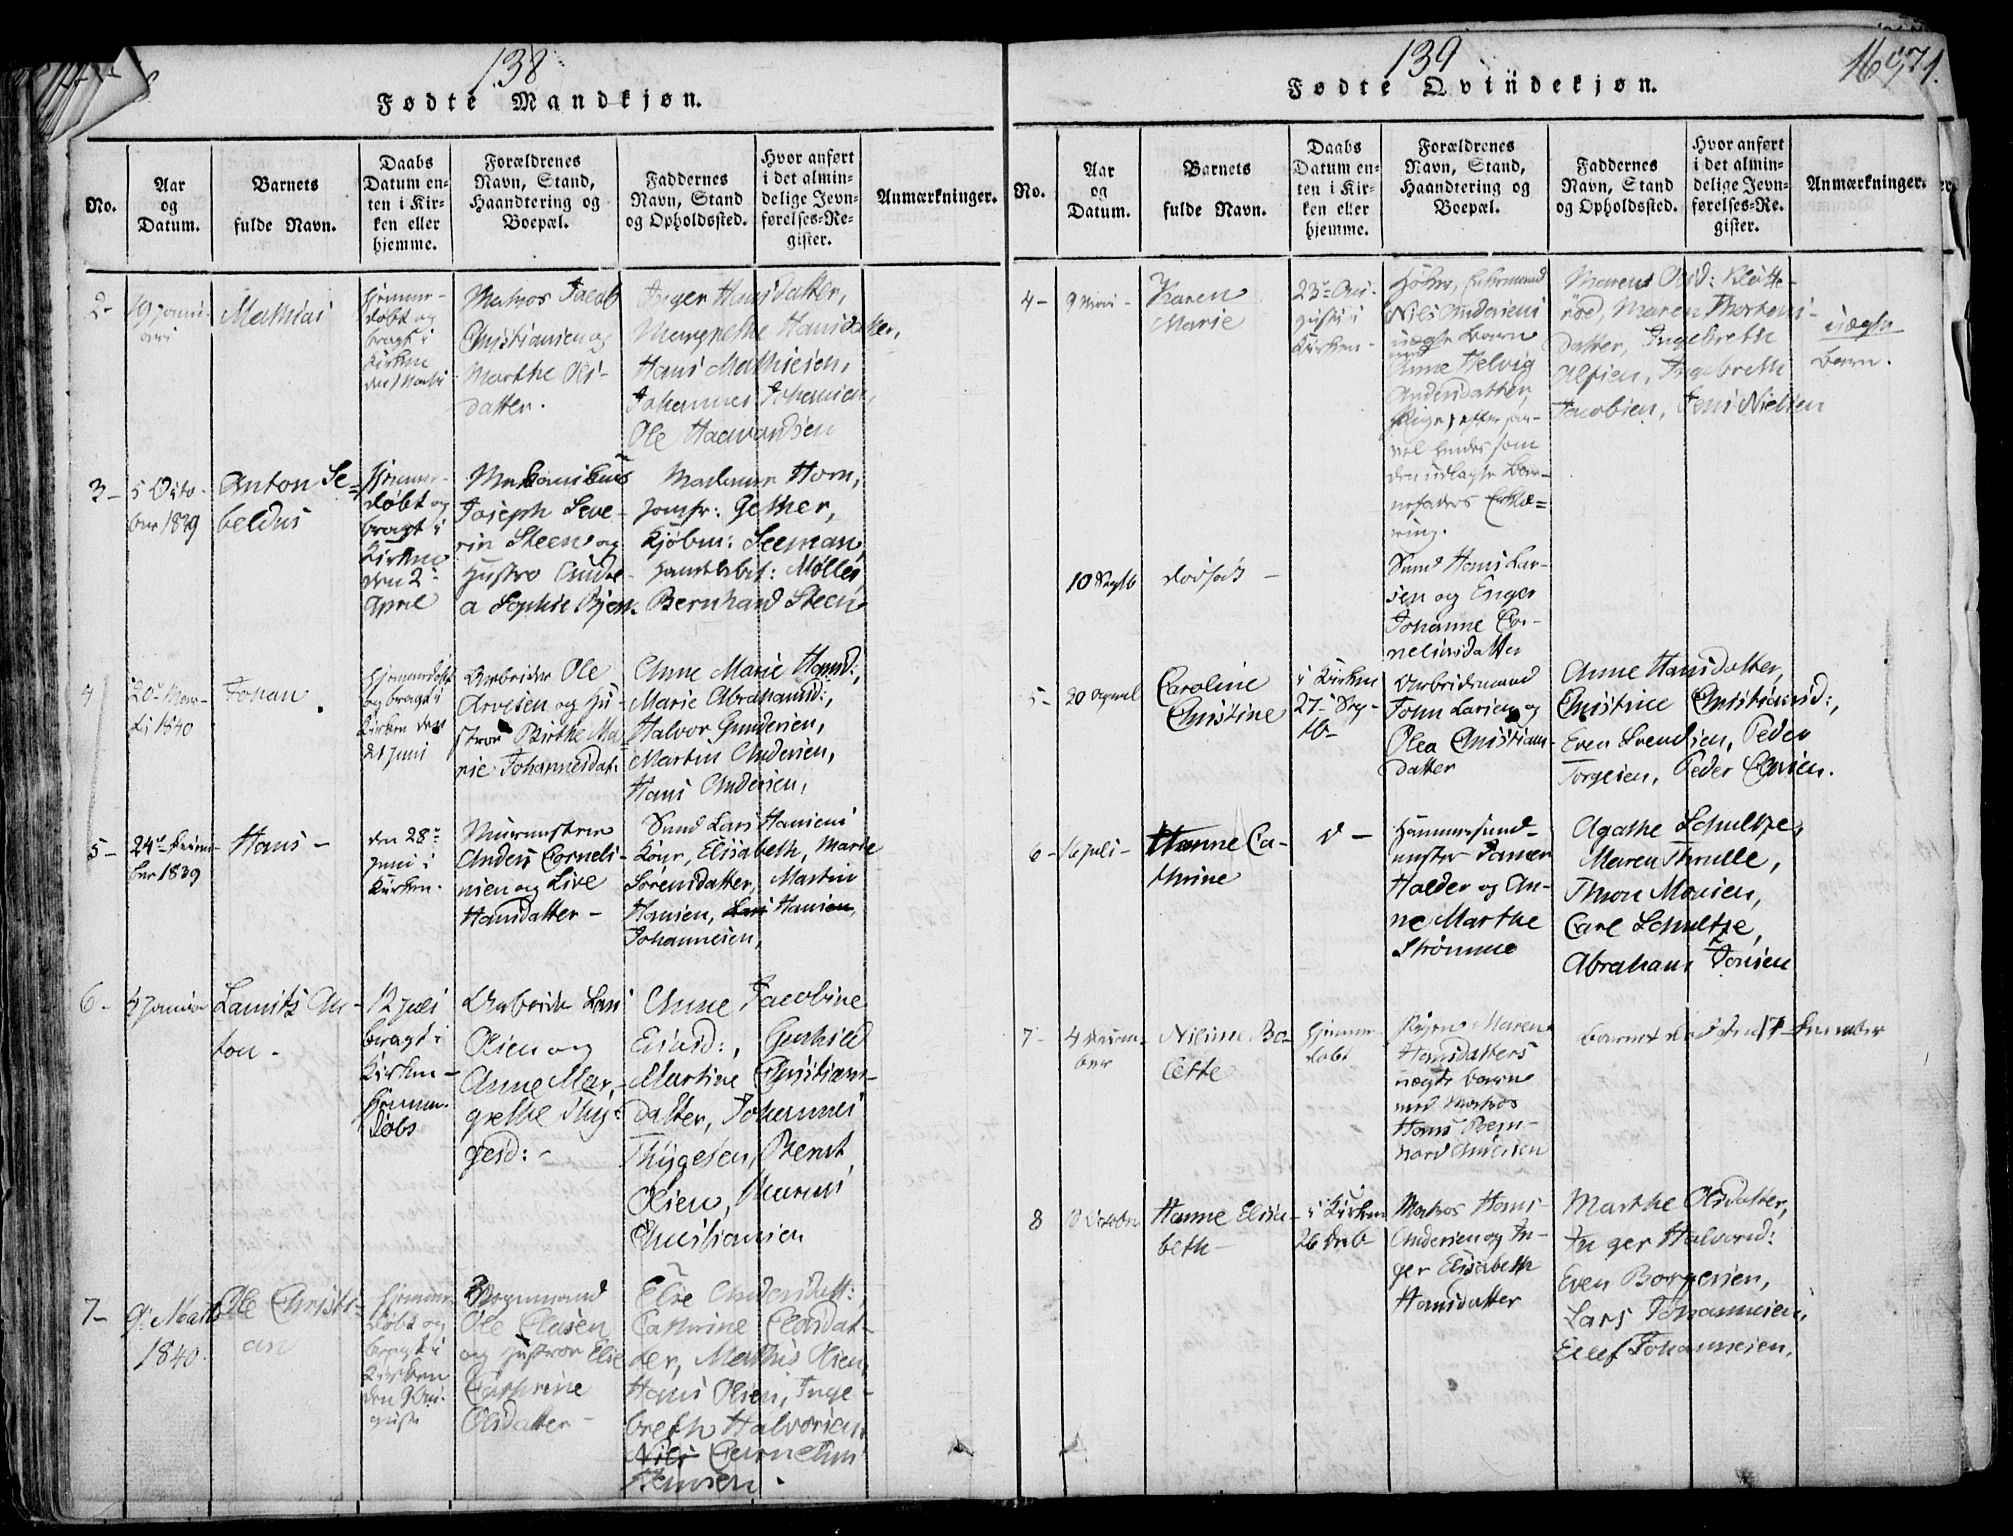 138
Fødte Mandkjøn.
No.
Aar
og
Datum.
Barnets
fulde Navn.
Daabs
Datum en-
ten i Kir-
ken eller
hjemme.
Forældrenes
Navn, Stand,
Haandtering og
Boepæl.
Faddernes
Navn, Stand
og Opholdssted.
Hvor anført
i det almin-
delige Jevn-
førelses-Re-
gister.
Anmærkninger.
2-
19 Janu-
ari
Mathias
Hjemme-
døbt og
bragt i
Kirken
den 1 Martii
Matros Jacob
Christiansen og
Marthe Ols-
datter.
Inger Hansdatter,
Margrethe Hansdatter,
Hans Mathiesen,
Johannes Johansen,
Ole Haavordsen
3-
5 Octo-
ber 1839
Anton Se-
beldus
Hjemme-
døbt og
bragt i
Kirken
den 2-
April
Mekanikus
Joseph Seve-
rin Steen og
Hustro Andre-
a Sophie Bjerk
Madame Horn,
Jomfr: Gether,
Kjøbm: Seeman,
Handelsbet: Møller
Bernhard Steen
4
20- Mar-
ti 1840
Johan.
Hjemmedøbt
og bragt i
Kirken den
21 Juni
Arbeider Ole
Arvesen og Hu-
stroe Birthe Ma-
rie Johannesdat.
Anne Marie Hansd:,
Marie Abrahamsd:,
Halvor Gundersen,
Martin Andersen,
Hans Andersen,
5-
24de Decem-
ber 1839
Hans -
den 28-
Juni i
Kirken.
Muurmester
Anders Corneli-
usen og Live
Hansdatter -
Sund Lars Hansens
Kone, Elisabeth, Marie
Sørensdatter, Martin
Hansen, Lars Hansen,
Johannesen,
6-
4 Januar
Lauritz An-
ton.
12 Juli
bragt i
Kirken -
Hjemme-
døbt
Arbeider Lars
Olsen og
Anne Mar-
grethe Thy-
gesd: -
Anne Jacobine
Eilisd:, Gunhild
Martine Christians-
datter, Johannes
Thygesen, Bernt
Olsen, Marius
Christiansen
7-
9. Marts
1840.
Ole Christi-
an
Hjemme-
døbt og
bragt i
Kirken
den 9 Au-
gusti
Vognmand
Ole Clasen
og Hustroe Elie
Cathrine
Olsdatter -
Elie Andersdatt:,
Cathrine Clasdat-
der, Mathis Olsen,
Hans Olsen, Inge-
breth Halvorsen,
Nils Cornelius
Hansen.
139
Fødte Qvindekjøn.
1671.
No.
Aar
og
Datum.
Barnets
fulde Navn.
Daabs
Datum en-
ten i Kir-
ken eller
hjemme.
Forældrenes
Navn, Stand,
Haandtering og
Boepæl.
Faddernes
Navn, Stand
og Opholdssted.
Hvor anført
i det almin-
delige Jevn-
førelses-Re-
gister.
Anmærkninger.
4-
9 Marti -
Karen
Marie
23- Au-
gusti i
Kirken -
Høker, Fuhrmand
Nils Andersens
uægte Barn
med
Anne Helvig
Andersdatter,
Pige, efter saa-
vel hendes som
den udlagte Bar-
nefaders Erklæ-
ring.
Maren Olsd: Kløtte-
røe, Maren Mortens-
datter, Ingebreth
Alfsen, Ingebreth
Jacobsen, Jens Nielsen
uægte
Barn.
10 Septb
dødfødt -
Sund Hans Lar-
sen og Enger
Johanne Cor-
neliusdatter
5-
20 April
Caroline
Christine
i Kirken
27- Sep-
tb-
Arbeidsmand
John Larsen og
Olea Christians-
datter
Anne Hansdatter,
Christine Christiansd:,
Even Svendsen, Peder
Torgesen, Peder Clausen.
6-
16 Juli -
Hanne Ca-
thrine
d -
Hammersund-
mester
Halder og An-
ne Marthe
Strømme
Agathe Schultze,
Maren Thrulle,
Thron Monsen,
Carl Schultze,
Abraham Jonsen
7-
4 Decem-
ber
Nilsine Bo-
lette
Hjemme-
døbt
Pigen Maren
Hansdatters
uægte Barn
med Matros
Hans Bern-
hard Andersen
Barnet død den 17- December
8
10 October
Hanne Elisa-
beth -
i Kirken
26 Decb
Matros Hans
Andersen og In-
ger Elisabeth
Hansdatter
Marthe Olsdatter,
Inger Halvorsd:
Even Borgersen,
Lars Johannesen,
Ellef Johannesen.